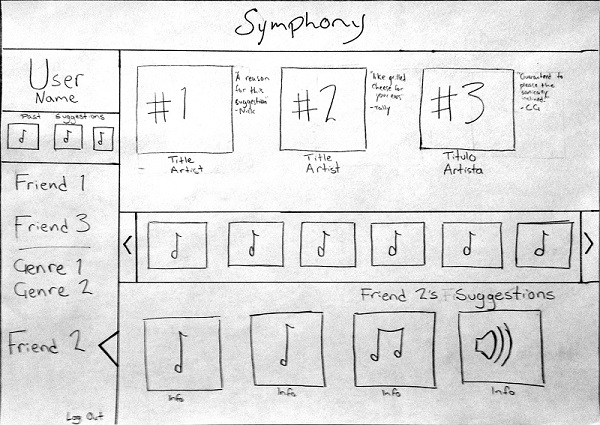 Symphony
User
Name
Past Suggestions
Friend 1
Friend 3
Genre 1
Genre 2
Friend 2
Log Out
#1
"A reason
for this
suggestion"
-Nick
Title
Artist
#2
"Like grilled
cheese for
your ears"
Title
Artist
#3
to
please the
sonically
inclined."
-CG
Titulo
Artista
<
>
Friend 2's Suggestions
Info
Info
Info
Info